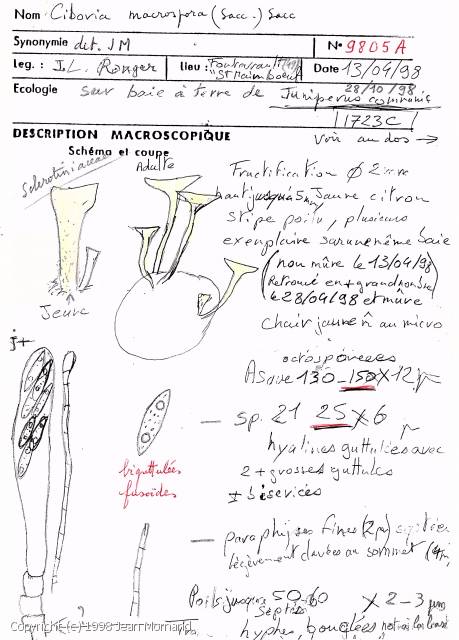 Nom Ciboria macrospora (Sacc.) Sacc
Synonymie det. JM
N° 9805 A
leg. : J.L. Ranger
lieu : Fontevrault (49)
"St Maimboeuf"
Date 13/04/98
28/10/98
Ecologie sur baie à terre de Juniperus communis
1723C
DESCRIPTION MACROSCOPIQUE
Voir au dos →
Schéma et coupe
Sclerotiniaceae
Adulte
Jeune
Fructification Ø 2 mm
haut jusqu'à 5 mm, Jaune citron
Stipe poilu, plusieurs
exemplaire sur une même baie
(non mûre le 13/04/98
Retrouvé en + grand nombre
le 28/04/98 et mûre
Chair jaune au micro
j+
octosporées
Asque 130-150 X 12 µ
— Sp. 21 25 X 6 µ
hyalines guttulées avec
2 + grosses guttules
± bisériées
biguttulées
fusoïdes
— paraphyses fines (2µ) septées
légèrement clavées au sommet (4µ)
Poils jusque 50-60 X 2-3 µm
septés
hyphes bouclées
Copyright (c) 1998 Jean Mornand